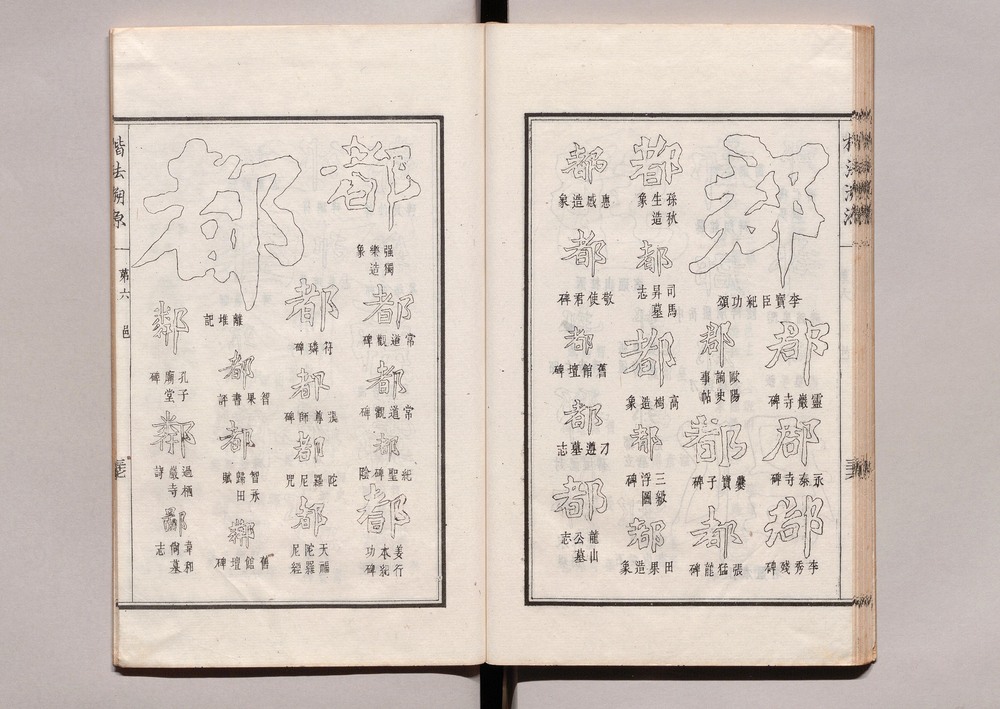 郡
李寶臣紀功頌
郡
靈巖寺碑
郡
永泰寺碑
郡
李秀殘碑
郡
歐陽詢史事帖
都
爨寶子碑
都
張猛龍碑
都
孫秋生造象
都
司馬昇墓志
都
高樹造象
都
三級浮圖碑
都
田果造象
都
惠感造象
都
敬使君碑
都
舊館壇碑
都
刁遵墓志
都
龍山公墓志
都
强獨樂造象
都
常道觀碑
都
常道觀碑
都
紀聖碑陰
都
姜行本紀功碑
都
離堆記
都
符璘碑
都
張尊師碑
都
陀羅尼咒
都
天福陀羅尼經
都
智果書評
都
智永歸田賦
鄰
舊館壇碑
鄰
孔子廟堂碑
鄰
過栖巖寺詩
鄙
楷法溯原 第六 邑